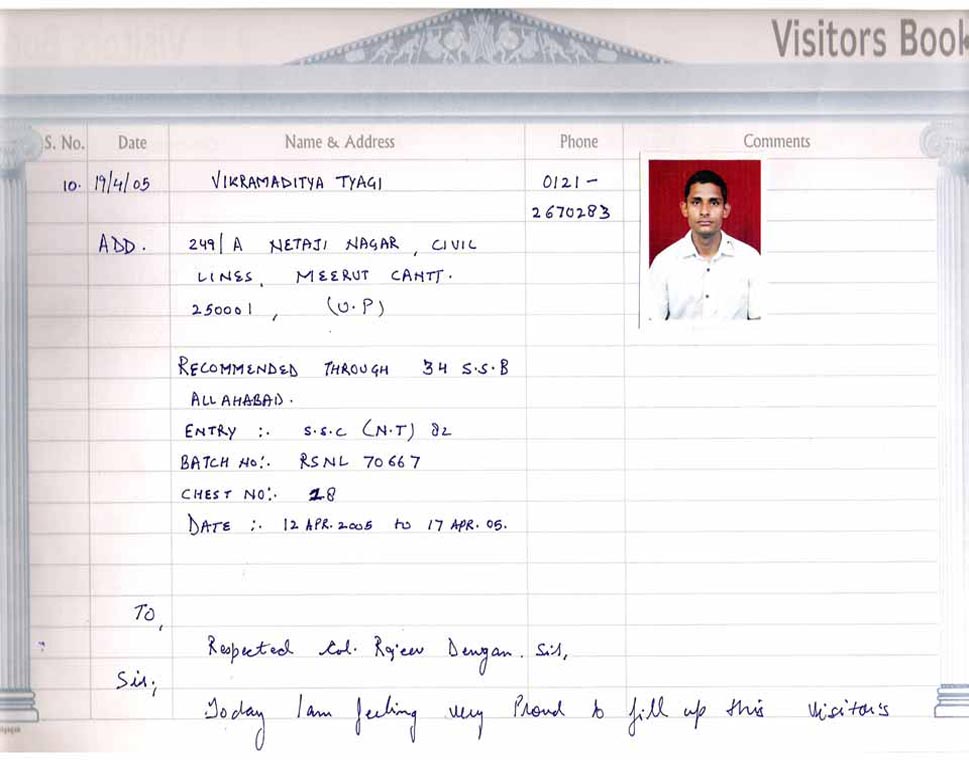 Visitors Book
S. No. Date Name & Address Phone Comments
10. 19/4/05 VIKRAMADITYA TYAGI 0121 -
2670283
ADD. 249/A NETAJI NAGAR, CIVIL
LINES, MEERUT CANTT.
250001, (U.P)
RECOMMENDED THROUGH 34 S.S.B
ALLAHABAD.
ENTRY :. S.S.C (N.T) 82
BATCH NO:. RSNL 70667
CHEST NO:. 28
DATE :. 12 APR. 2005 to 17 APR. 05.
TO,
Respected Col. Rajeev Dengan. Sir,
Sir,
Today I am feeling very Proud to fill up this visitor's